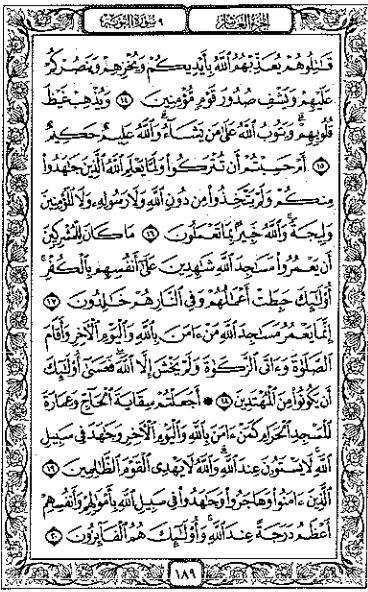 الجزء العاشر ٩ سورة التوبة
قَـٰتِلُوهُمْ يُعَذِّبْهُمُ ٱللَّهُ بِأَيْدِيكُمْ وَيُخْزِهِمْ وَيَنصُرْكُمْ
عَلَيْهِمْ وَيَشْفِ صُدُورَ قَوْمٍ مُّؤْمِنِينَ ١٤ وَيُذْهِبْ غَيْظَ
قُلُوبِهِمْ ۗ وَيَتُوبُ ٱللَّهُ عَلَىٰ مَن يَشَآءُ ۗ وَٱللَّهُ عَلِيمٌ حَكِيمٌ
١٥ أَمْ حَسِبْتُمْ أَن تُتْرَكُوا۟ وَلَمَّا يَعْلَمِ ٱللَّهُ ٱلَّذِينَ جَـٰهَدُوا۟
مِنكُمْ وَلَمْ يَتَّخِذُوا۟ مِن دُونِ ٱللَّهِ وَلَا رَسُولِهِۦ وَلَا ٱلْمُؤْمِنِينَ
وَلِيجَةً ۚ وَٱللَّهُ خَبِيرٌۢ بِمَا تَعْمَلُونَ ١٦ مَا كَانَ لِلْمُشْرِكِينَ
أَن يَعْمُرُوا۟ مَسَـٰجِدَ ٱللَّهِ شَـٰهِدِينَ عَلَىٰٓ أَنفُسِهِم بِٱلْكُفْرِ ۚ
أُو۟لَـٰٓئِكَ حَبِطَتْ أَعْمَـٰلُهُمْ وَفِى ٱلنَّارِ هُمْ خَـٰلِدُونَ ١٧
إِنَّمَا يَعْمُرُ مَسَـٰجِدَ ٱللَّهِ مَنْ ءَامَنَ بِٱللَّهِ وَٱلْيَوْمِ ٱلْـَٔاخِرِ وَأَقَامَ
ٱلصَّلَوٰةَ وَءَاتَى ٱلزَّكَوٰةَ وَلَمْ يَخْشَ إِلَّا ٱللَّهَ ۖ فَعَسَىٰٓ أُو۟لَـٰٓئِكَ
أَن يَكُونُوا۟ مِنَ ٱلْمُهْتَدِينَ ١٨ ۞ أَجَعَلْتُمْ سِقَايَةَ ٱلْحَآجِّ وَعِمَارَةَ
ٱلْمَسْجِدِ ٱلْحَرَامِ كَمَنْ ءَامَنَ بِٱللَّهِ وَٱلْيَوْمِ ٱلْـَٔاخِرِ وَجَـٰهَدَ فِى سَبِيلِ
ٱللَّهِ ۚ لَا يَسْتَوُۥنَ عِندَ ٱللَّهِ ۗ وَٱللَّهُ لَا يَهْدِى ٱلْقَوْمَ ٱلظَّـٰلِمِينَ ١٩
ٱلَّذِينَ ءَامَنُوا۟ وَهَاجَرُوا۟ وَجَـٰهَدُوا۟ فِى سَبِيلِ ٱللَّهِ بِأَمْوَٰلِهِمْ وَأَنفُسِهِمْ
أَعْظَمُ دَرَجَةً عِندَ ٱللَّهِ ۚ وَأُو۟لَـٰٓئِكَ هُمُ ٱلْفَآئِزُونَ ٢٠
١٨٩